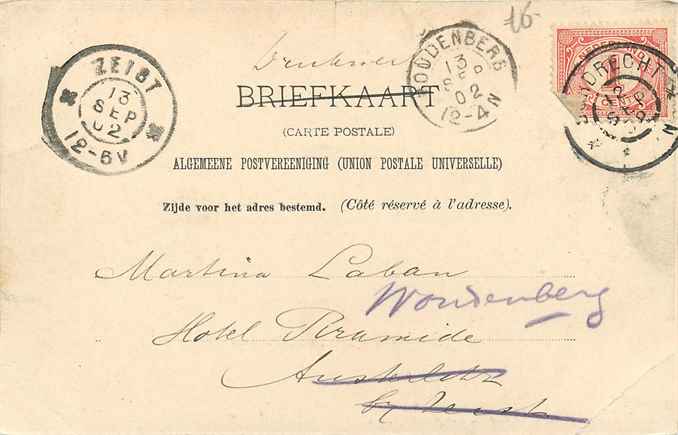 16-
Drukwerk
ZEIST
13
SEP
02
12-6V
WOUDENBERG
13
SEP
02
12-4N
DORDRECHT
12
SEP
BRIEFKAART
(CARTE POSTALE)
ALGEMEENE POSTVEREENIGING (UNION POSTALE UNIVERSELLE)
Zijde voor het adres bestemd. (Côté réservé à l'adresse).
Martina Laban
Woudenberg
Hotel Piramide
Austerlitz
by Zeist